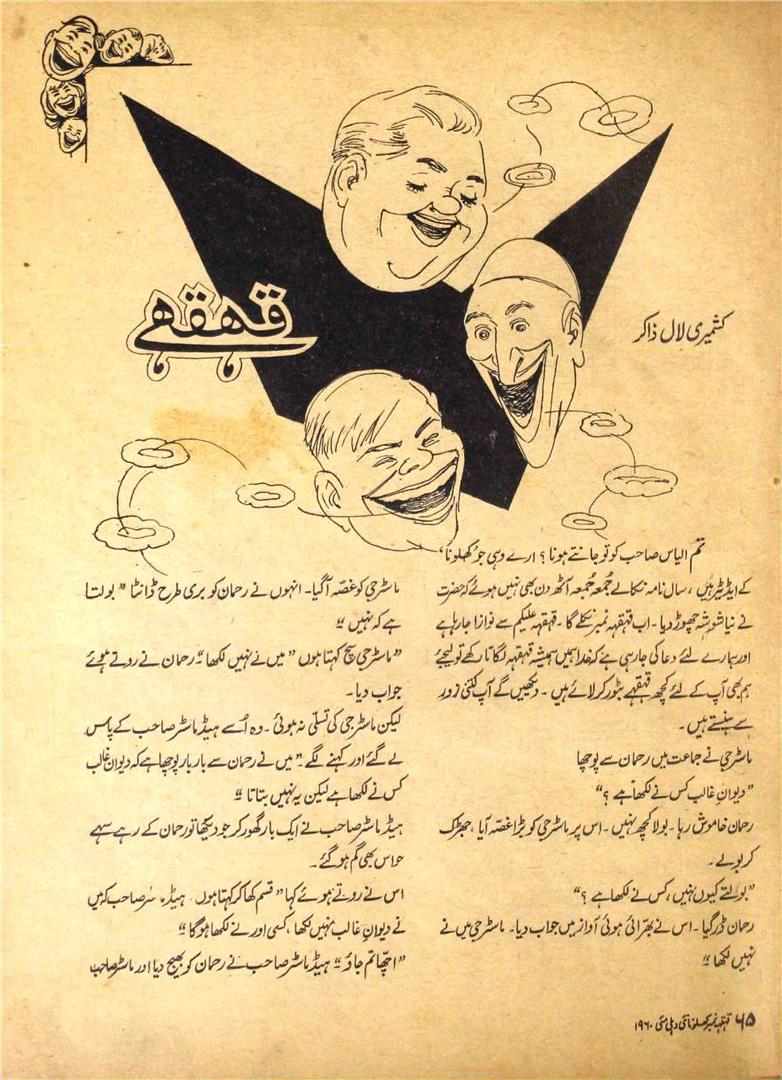 قہقہے
کشمیری لال ذاکر
تم الیاس صاحب کو تو جانتے ہو نا؟ ارے وہی جو ’کھلونا‘
کے ایڈیٹر ہیں، سال نامہ نکالے جمعہ جمعہ آٹھ دن بھی نہیں ہوئے کہ حضرت
نے نیا شوشہ چھوڑ دیا۔ اب قہقہہ نمبر نکلے گا۔ قہقہہ علیکم سے نوازا جا رہا ہے
اور ہمارے لئے دعا کی جا رہی ہے کہ خدا ہمیں ہمیشہ قہقہہ لگاتا رکھے تو لیجئے
ہم بھی آپ کے لئے کچھ قہقہے بٹور کر لائے ہیں۔ دیکھیں گے آپ کتنی زور
سے ہنستے ہیں۔
ماسٹر جی نے جماعت میں رحمان سے پوچھا
”دیوانِ غالب کس نے لکھا ہے؟“
رحمان خاموش رہا۔ بولا کچھ نہیں۔ اس پر ماسٹر جی کو بڑا غصّہ آیا، جھڑک
کر بولے۔
”بولتے کیوں نہیں، کس نے لکھا ہے؟“
رحمان ڈر گیا۔ اس نے بھرّائی ہوئی آواز میں جواب دیا۔ ماسٹر جی میں نے
نہیں لکھا“
ماسٹر جی کو غصّہ آ گیا۔ انہوں نے رحمان کو بری طرح ڈانٹا ”بولتا
ہے کہ نہیں“
”ماسٹر جی سچ کہتا ہوں“ میں نے نہیں لکھا“ رحمان نے روتے ہوئے
جواب دیا۔
لیکن ماسٹر جی کی تسلّی نہ ہوئی۔ وہ اُسے ہیڈ ماسٹر صاحب کے پاس
لے گئے اور کہنے لگے۔ ”میں نے رحمان سے بار بار پوچھا ہے کہ دیوانِ غالب
کس نے لکھا ہے لیکن یہ نہیں بتاتا“
ہیڈ ماسٹر صاحب نے ایک بار گھور کر جو دیکھا تو رحمان کے رہے سہے
حواس بھی گم ہو گئے۔
اس نے روتے ہوئے کہا ”قسم کھا کر کہتا ہوں ہیڈ ماسٹر صاحب کہ میں
نے دیوانِ غالب نہیں لکھا، کسی اور نے لکھا ہو گا“
”اچھا تم جاؤ“ ہیڈ ماسٹر صاحب نے رحمان کو بھیج دیا اور ماسٹر صاحب
۶۵ قہقہہ نمبر کھلونا نئی دہلی مئی ۱۹۶۰